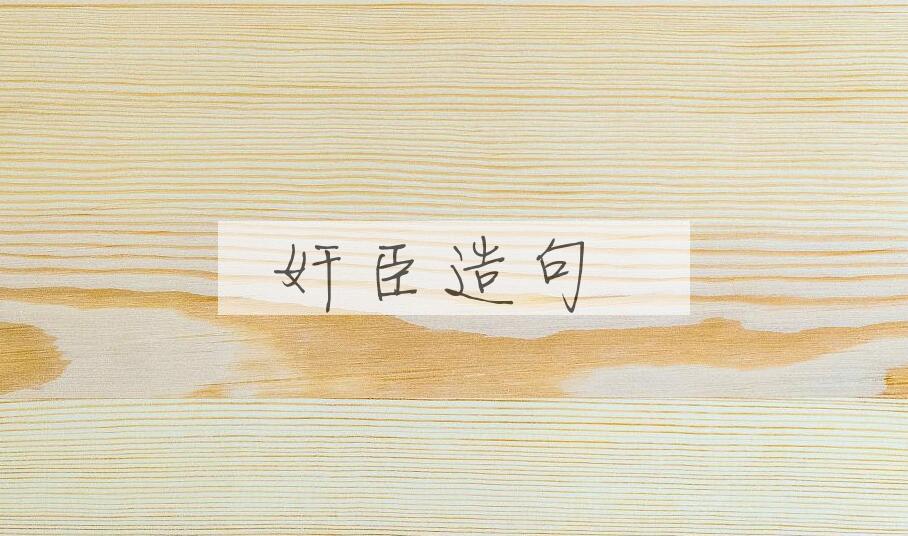 奸臣造句